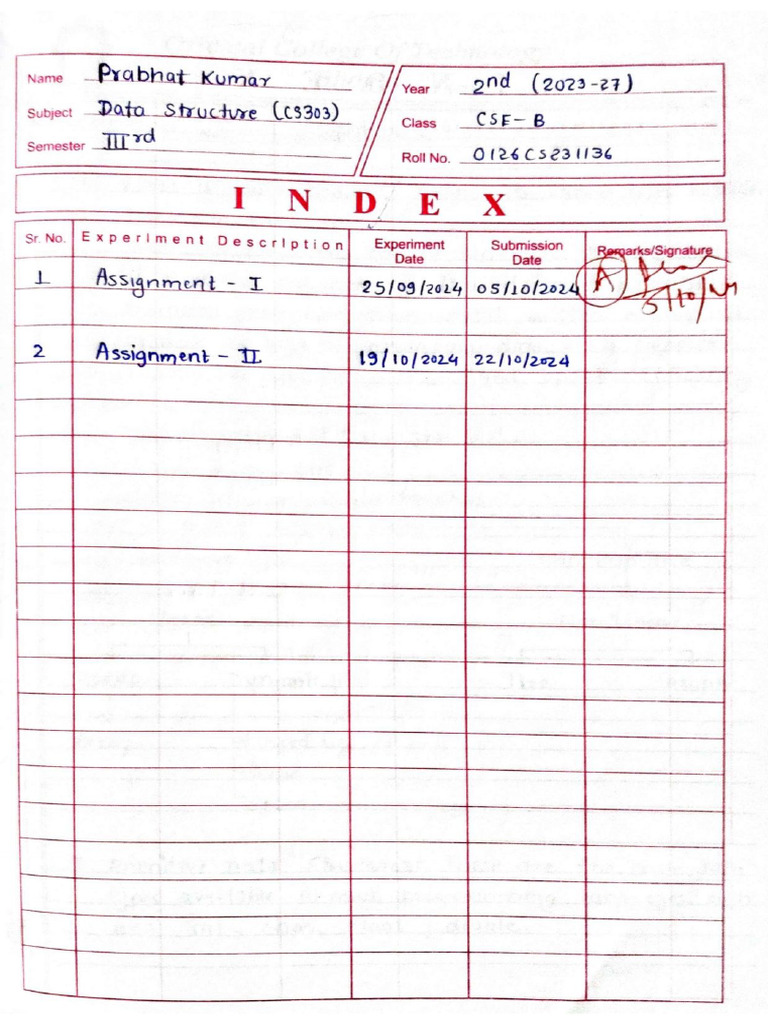 Name Prabhat Kumar
Subject Data Structure (CS303)
Semester IIIrd
Year 2nd (2023-27)
Class CSE-B
Roll No. 0126CS231136
INDEX
Sr. No. Experiment Description Experiment Date Submission Date Remarks/Signature
1 Assignment - I 25/09/2024 05/10/2024 A 5/10/24
2 Assignment - II 19/10/2024 22/10/2024